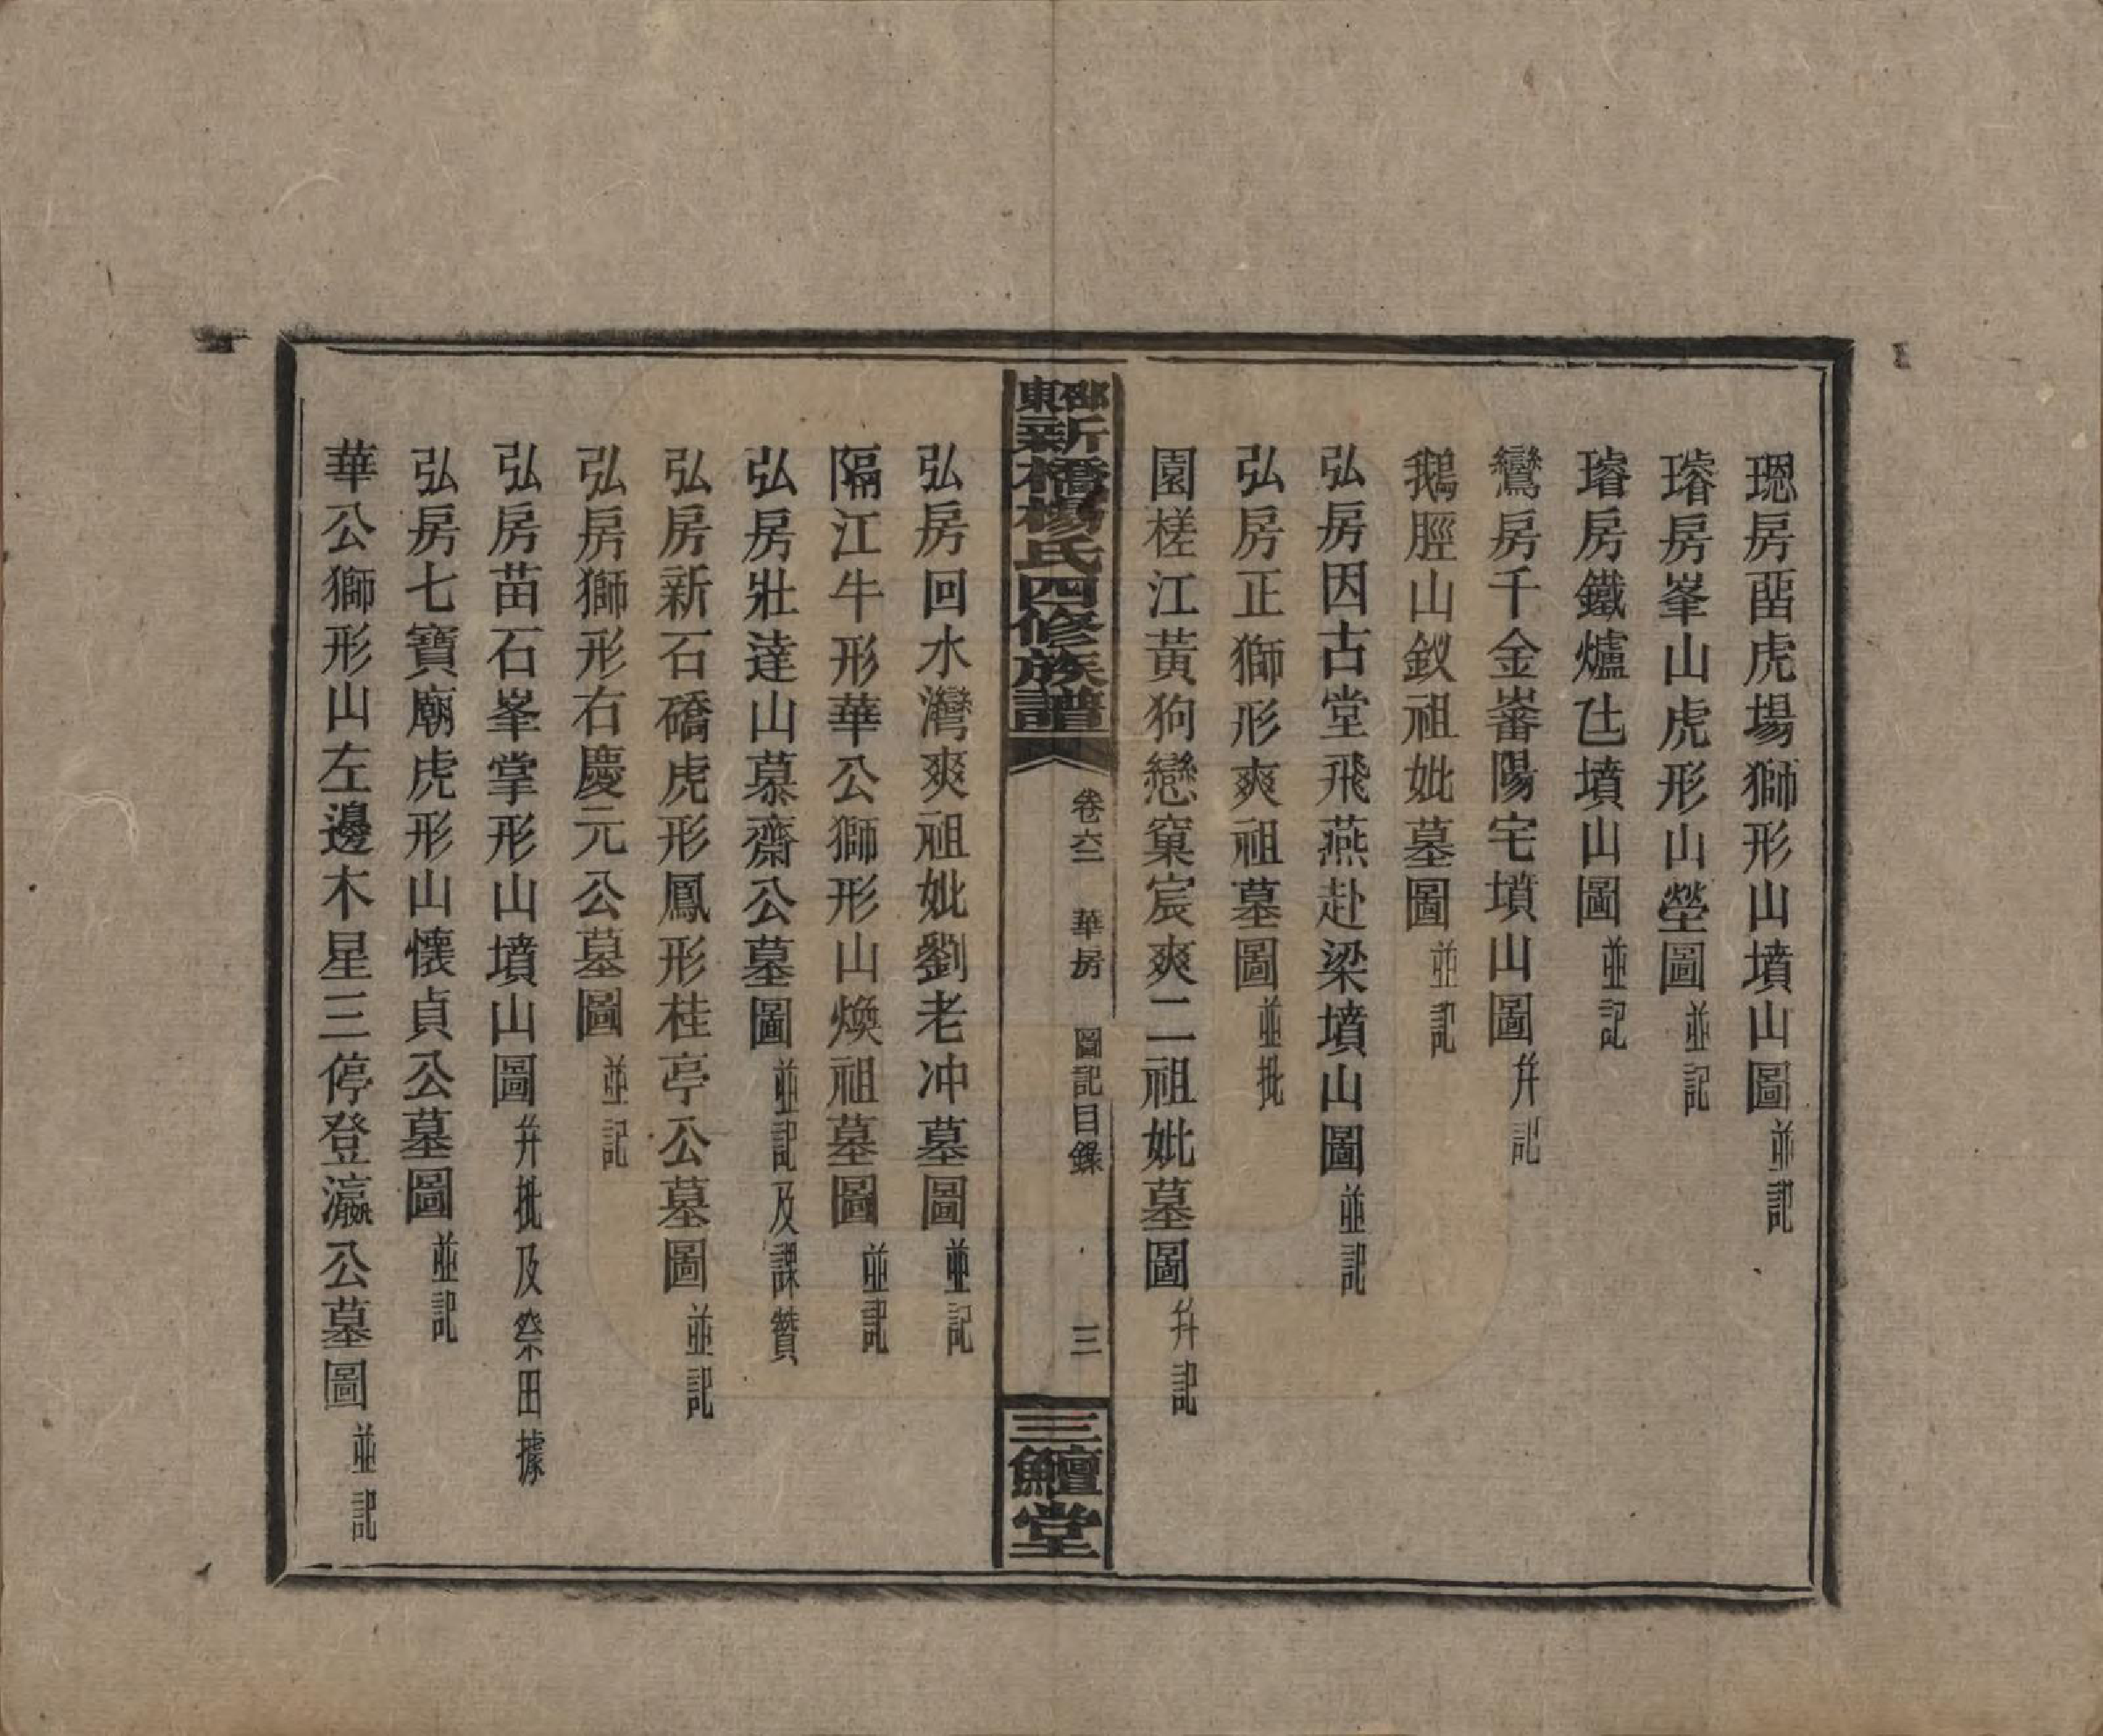 璁房䨱虎場獅形山墳山圖並記
璿房峯山虎形山塋圖並記
璿房鐵爐㐀墳山圖並記
鸞房千金嶓陽宅墳山圖幷記
鵝脛山釵祖妣墓圖並記
弘房因古堂飛燕赴梁墳山圖並記
弘房正獅形爽祖墓圖並批
園槎江黃狗戀窠宸爽二祖妣墓圖幷記
邵東新橋楊氏四修族譜 卷六二 華房 圖記目錄 三 三鱣堂
弘房回水灣爽祖妣劉老冲墓圖並記
隔江牛形華公獅形山煥祖墓圖並記
弘房壯達山慕齋公墓圖並記及課贊
弘房新石礄虎形鳳形桂亭公墓圖並記
弘房獅形右慶元公墓圖並記
弘房苗石峯掌形山墳山圖幷批及祭田據
弘房七寶廟虎形山懷貞公墓圖並記
華公獅形山左邊木星三停登瀛公墓圖並記